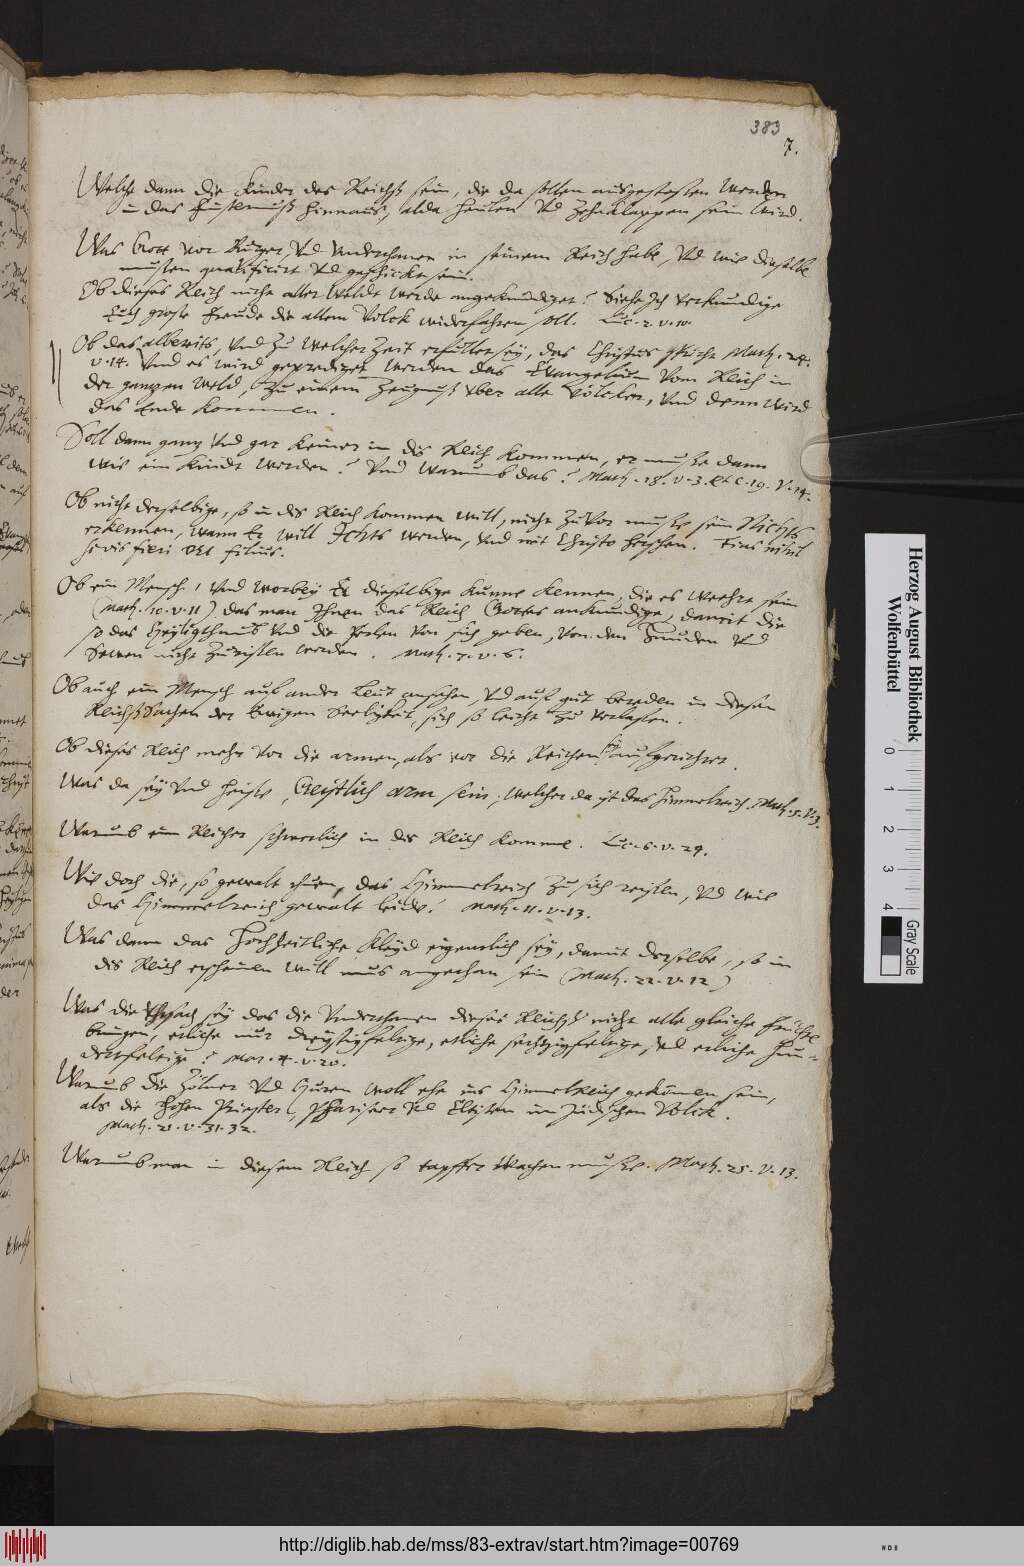 383
7.
Welche dann die Kinder des Reichs sein, die da sollen ausgestossen werden
in das finsternuß hinnaus, alda heulen Vnd Zehnklappen sein wird.
Was Gott vor Burger, Vnd Vnderthanen in seinem Reich habe, Vnd wie dieselbe
musten qualificirt Vnd geschickt sein.
Ob dieses Reich nicht aller Weldt werde angekundiget? Siehe Ich verkundige
Euch grosse freude die allem Volck widerfahren soll. Luc. 2. v. 10.
Ob das albereits, Vnd zu welcher Zeit erfullet sey, das Christus spricht Math. 24.
v. 14. Vnd es wird geprediget werden das Evangelium Vom Reich in
der gantzen Weld, zu einem Zeugnuß vber alle Völcker, Vnd denn wird
das Ende kommen.
Soll dann gantz Vnd gar keiner in dis Reich kommen, er musse dann
wie ein Kindt werden? Vnd warumb das? Math. 18. v. 3. et c. 19. v. 14.
Ob nicht derselbige, so in dis Reich kommen will, nicht zuvor musse sein Nichts
erkennen, wann Er will Ichts werden, Vnd mit Christo herschen. Fias nihil
si vis fieri Dei filius.
Ob ein Mensch, Vnd worbey Er dieselbige kunne kennen, die es werth sein
(Math. 10. v. 11) das man Ihnen das Reich Gottes ankundige, damit die
so das Heyligthumb Vnd die Perlen von sich geben, von den Hunden Vnd
Sewen nicht zurissen werden. Math. 7. v. 6.
Ob auch ein Mensch auf ander Leut ansehen Vnd auf gut bereden in diesen
Reichs Sachen der Ewigen Seeligkeit, sich so leicht zu verlassen.
Ob dieses Reich mehr vor die armen, als vor die Reichen sey aufgerichtet.
Was da sey Vnd heisse, Geistlich arm sein, welcher da ist das Himmelreich. Math. 5. v. 3.
Warumb ein Reicher schwerlich in dis Reich komme. Luc. 6. v. 24.
Wie doch die, so gewalt thuen, das Himmelreich zu sich reissen, Vnd wie
das Himmelreich gewalt leide? Math. 11. v. 13.
Was dann das Hochzeitliche Kleyd eigentlich sey, damit derselbe, so in
dis Reich erscheinen will mus angethan sein (Math. 22. v. 12)
Was die Vhrsach sey das die Vnderthanen dieses Reichs nicht alle gleiche früchte
bringen, etliche nur dreysigfeltige, etliche sechtzigfeltige, Vnd etliche hun-
dertfeltige? Mar. 4. v. 20.
Warumb die Zölner Vnd Huren woll ehe ins Himmelreich gekomen sein,
als die Hohen Priester, Phariseer Vnd Eltisten im Jüdischen Volck.
Math. 21. v. 31. 32.
Warumb man in diesem Reich so tapffer Wachen musse. Math. 25. v. 13.
Herzog August Bibliothek
Wolfenbüttel
0 1 2 3 4
Gray Scale
http://diglib.hab.de/mss/83-extrav/start.htm?image=00769